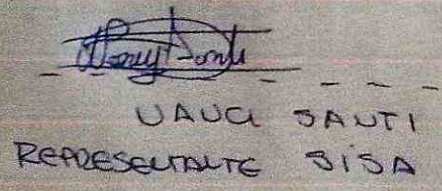 NANCI SANTI
REPRESENTANTE SISA